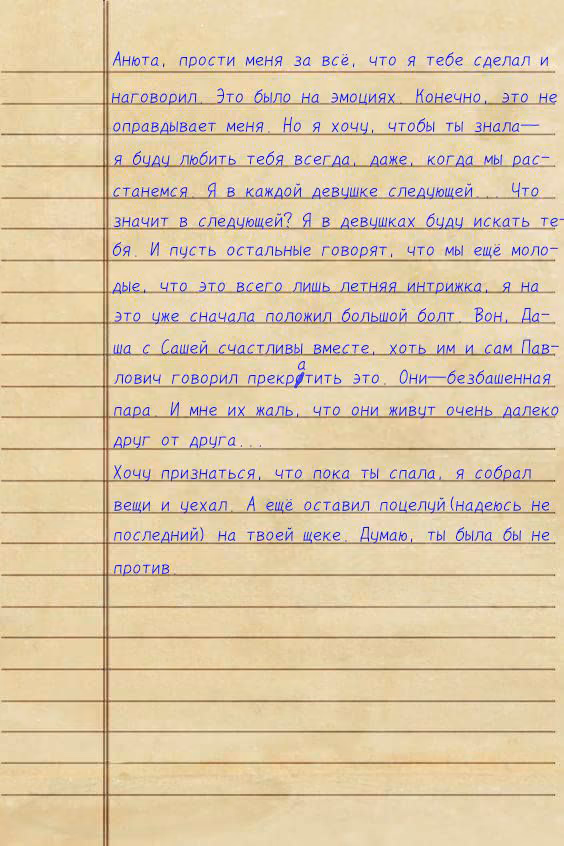 Анюта, прости меня за всё, что я тебе сделал и
наговорил. Это было на эмоциях. Конечно, это не
оправдывает меня. Но я хочу, чтобы ты знала—
я буду любить тебя всегда, даже, когда мы рас-
станемся. Я в каждой девушке следующей... Что
значит в следующей? Я в девушках буду искать те-
бя. И пусть остальные говорят, что мы ещё моло-
дые, что это всего лишь летняя интрижка, я на
это уже сначала положил большой болт. Вон, Да-
ша с Сашей счастливы вместе, хоть им и сам Пав-
лович говорил прекратить это. Они—безбашенная
пара. И мне их жаль, что они живут очень далеко
друг от друга...
Хочу признаться, что пока ты спала, я собрал
вещи и уехал. А ещё оставил поцелуй(надеюсь не
последний) на твоей щеке. Думаю, ты была бы не
против.